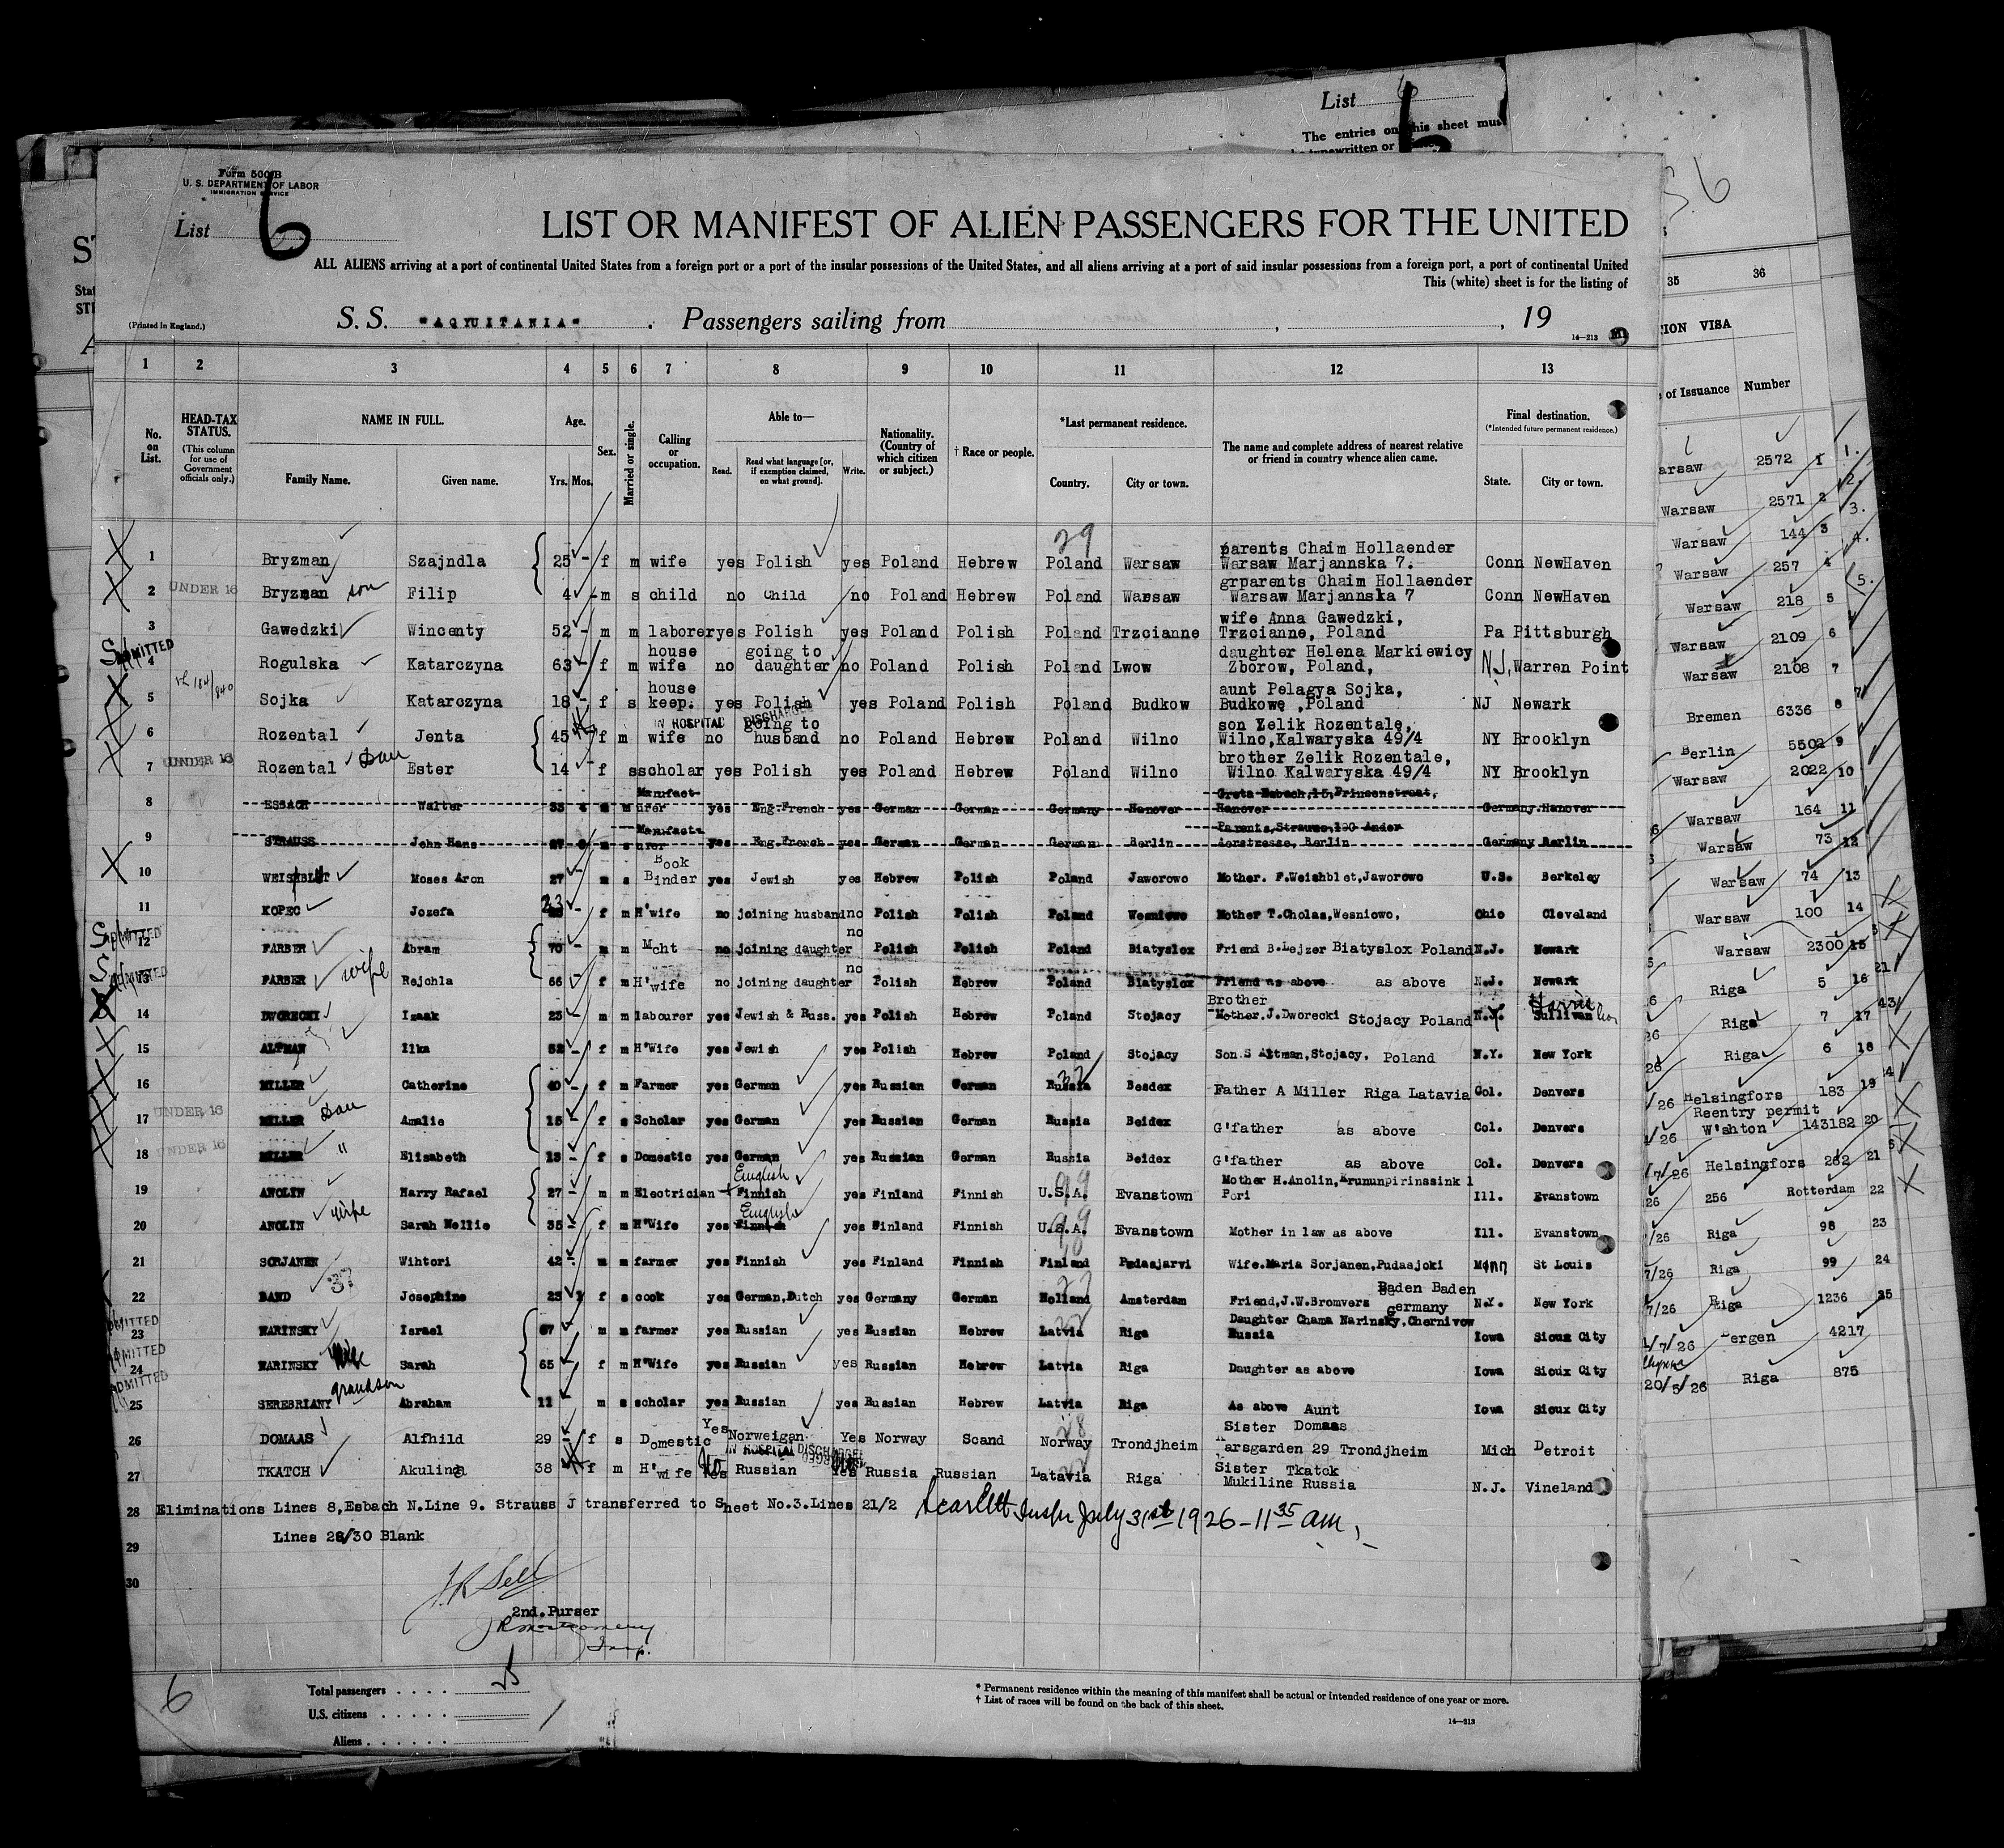 List 6
The entries on this sheet must
be typewritten or
Form 500 B
U. S. DEPARTMENT OF LABOR
IMMIGRATION SERVICE
List 6
LIST OR MANIFEST OF ALIEN PASSENGERS FOR THE UNITED
ALL ALIENS arriving at a port of continental United States from a foreign port or a port of the insular possessions of the United States, and all aliens arriving at a port of said insular possessions from a foreign port, a port of continental United
This (white) sheet is for the listing of
(Printed in England.) S. S. "AQYUITANIA" . Passengers sailing from , , 19
14—213
1 2 3 4 5 6 7 8 9 10 11 12 13
No. on List. HEAD-TAX STATUS. (This column for use of Government officials only.) NAME IN FULL. Family Name. Given name. Age. Yrs. Mos. Sex. Married or single. Calling or occupation. Able to— Read. Read what language [or, if exemption claimed, on what ground]. Write. Nationality. (Country of which citizen or subject.) † Race or people. *Last permanent residence. Country. City or town. The name and complete address of nearest relative or friend in country whence alien came. Final destination. (*Intended future permanent residence.) State. City or town.
29
1 Bryzman Szajndla 25 - f m wife yes Polish yes Poland Hebrew Poland Warsaw parents Chaim Hollaender Warsaw Marjannska 7. Conn NewHaven
2 UNDER 16 Bryzman son Filip 4 - m s child no Child no Poland Hebrew Poland Warsaw grparents Chaim Hollaender Warsaw Marjannska 7 Conn NewHaven
3 Gawedzki Wincenty 52 - m m laborer yes Polish yes Poland Polish Poland Trzcianne wife Anna Gawedzki, Trzcianne, Poland Pa Pittsburgh
ADMITTED 4 Rogulska Katarczyna 63 - f m house wife no going to daughter no Poland Polish Poland Lwow daughter Helena Markiewicy Zborow, Poland, NJ, Warren Point
5 Sojka Katarczyna 18 - f s house keep. yes Polish yes Poland Polish Poland Budkow aunt Pelagya Sojka, Budkowę ,Poland NJ Newark
IN HOSPITAL DISCHARGED
6 Rozental Jenta 45 f m wife no going to husband no Poland Hebrew Poland Wilno son Zelik Rozentale, Wilno,Kalwaryska 49/4 NY Brooklyn
7 UNDER 16 Rozental dau Ester 14 - f s scholar yes Polish yes Poland Hebrew Poland Wilno brother Zelik Rozentale, Wilno Kalwaryska 49/4 NY Brooklyn
8 ESBACH Walter 33 m Manufact urer yes Eng.French yes German German Germany Hanover Greta Esbach,15,Prinsenstraat, Hanover Germany.Hanover
9 STRAUSS John Hans 27 m s Manufact urer yes Eng.French yes German German German Berlin Parents,Strauss,100 Ander Berlin Germany Berlin
10 WEISHBLUT Moses Aron 27 m s Book Binder yes Jewish yes Hebrew Polish Poland Jaworowo Mother. F.Weishblet,Jaworowo U.S. Berkeley
11 KOPEC Jozefa 23 - f m H'wife no joining husband no Polish Polish Poland Wesniowo Mother T.Cholas,Wesniowo, Ohio Cleveland
ADMITTED 12 FARBER Abram 70 - m m Mcht no joining daughter no Polish Polish Poland Biatyslox Friend B.Lejzer Biatyslox Poland N.J. Newark
ADMITTED 13 FARBER wife Rejchla 66 f m H'wife no joining daughter no Polish Hebrew Poland Biatyslox Friend as above as above N.J. Newark
14 DWORECKI Izaak 23 - m m labourer yes Jewish & Russ. yes Polish Hebrew Poland Stojacy Brother Mother.J.Dworecki Stojacy Poland N.Y. Sullivan
15 ALTMAN Ilka 52 - f m H'Wife yes Jewish yes Polish Hebrew Poland Stojacy Son.S Altman,Stojacy, Poland N.Y. New York
16 MILLER Catherine 40 - f m Farmer yes German yes Russian German Russia Besdex Father A Miller Riga Latavia Col. Denvers
17 UNDER 16 MILLER dau Amalie 15 - f s Scholar yes German yes Russian German Russia Beidex G'father as above Col. Denvers
18 UNDER 16 MILLER " Elisabeth 13 - f s Domestic yes German yes Russian German Russia Beidex G'father as above Col. Denvers
19 ANOLIN Harry Rafael 27 - m m Electrician English + Finnish yes Finland Finnish U.S.A. Evanstown Mother H.Anolin,Brununpirinssink 1 Pori Ill. Evanstown
20 ANOLIN wife Sarah Nellie 35 - f m H'Wife yes English Finnish yes Finland Finnish U.S.A. Evanstown Mother in law as above Ill. Evanstown
21 SORJANEN Wihtori 42 - m m farmer yes Finnish yes Finland Finnish Finland Padasjarvi Wife.Maria Sorjanen,Pudasjoki Minn St Louis
22 BAND 37 Josephine 23 f s cook yes German,Dutch yes Germany German Holland Amsterdam Friend,J.W.Bromvers Baden Baden Germany N.Y. New York
ADMITTED 23 NARINSKY Israel 67 m m farmer yes Russian yes Russian Hebrew Latvia Riga Daughter Chama Narinsky,Chernivow Russia Iowa Sioux City
ADMITTED 24 NARINSKY wife Sarah 65 f m H'Wife yes Russian yes Russian Hebrew Latvia Riga Daughter as above Iowa Sioux City
ADMITTED 25 SEREBRIANY grandson Abraham 11 m s scholar yes Russian yes Russian Hebrew Latvia Riga As above Aunt Iowa Sioux City
26 DOMAAS Alfhild 29 - f s Domestic Yes Norweigan Yes Norway Scand Norway Trondjheim Sister Domaas Karsgarden 29 Trondjheim Mich Detroit
IN HOSPITAL DISCHARGED
27 TKATCH Akulina 38 f m H'wife No Russian Russia Russian Latavia Riga Sister Tkatck Mukiline Russia N.J. Vineland
28 Eliminations Lines 8,Esbach N.Line 9. Strauss J transferred to Sheet No.3.Lines 21/2 Scarlett Inspr July 31st 1926 - 11 35 am,
Lines 28/30 Blank
29
30
J R Sell
2nd. Purser
JR Montgomery
Insp.
6
Total passengers . . . . 25
U.S. citizens . . . . .
Aliens . . . . . .
* Permanent residence within the meaning of this manifest shall be actual or intended residence of one year or more.
† List of races will be found on the back of this sheet.
14—213
35 36
TION VISA
of Issuance Number
arsaw 2572 1 1.
Warsaw 2571 2 2.
Warsaw 144 3 3.
Warsaw 257 4 4.
Warsaw 218 5 5.
Warsaw 2109 6
Warsaw 2108 7
Bremen 6336 8
Berlin 5502 9
Warsaw 2022 10
Warsaw 164 11
Warsaw 73 12
Warsaw 74 13
Warsaw 100 14
Warsaw 2300 15
Riga 5 16
Riga 7 17
Riga 6 18
Helsingfors 183 19
Reentry permit
W'shton 143182 20
Helsingfors 262 21
256 Rotterdam 22
Riga 98 23
Riga 99 24
Riga 1236 25
Bergen 4217
20/5/26 Riga 875